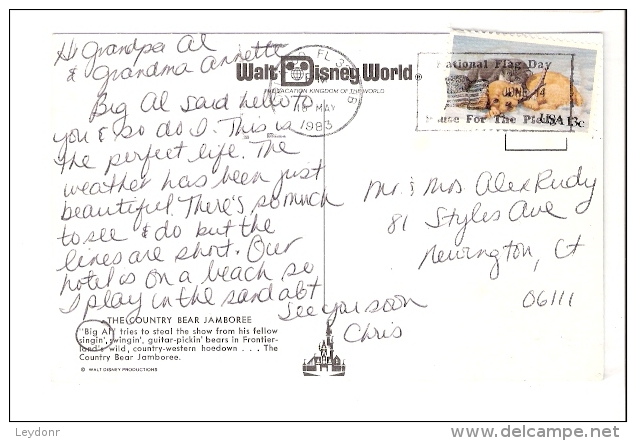 Hi Grandpa Al
& Grandma Annette
Big Al said hello to
you & so do I. This is
the perfect life. The
weather has been just
beautiful. There's so much
to see & do but the
lines are short. Our
hotel is on a beach so
I play in the sand a bt
See you soon
Chris
THE COUNTRY BEAR JAMBOREE
"Big Al" tries to steal the show from his fellow
singin', swingin', guitar-pickin' bears in Frontier-
land's wild, country-western hoedown . . . The
Country Bear Jamboree.
© WALT DISNEY PRODUCTIONS
Walt Disney World
THE VACATION KINGDOM OF THE WORLD
FL
MAY
1983
National Flag Day
JUNE 14
Pause For The Pledge
USA 13c
Mr. & Mrs. Alex Rudy
81 Styles Ave
Newington, Ct
06111
Leydonr
www.delcampe.net